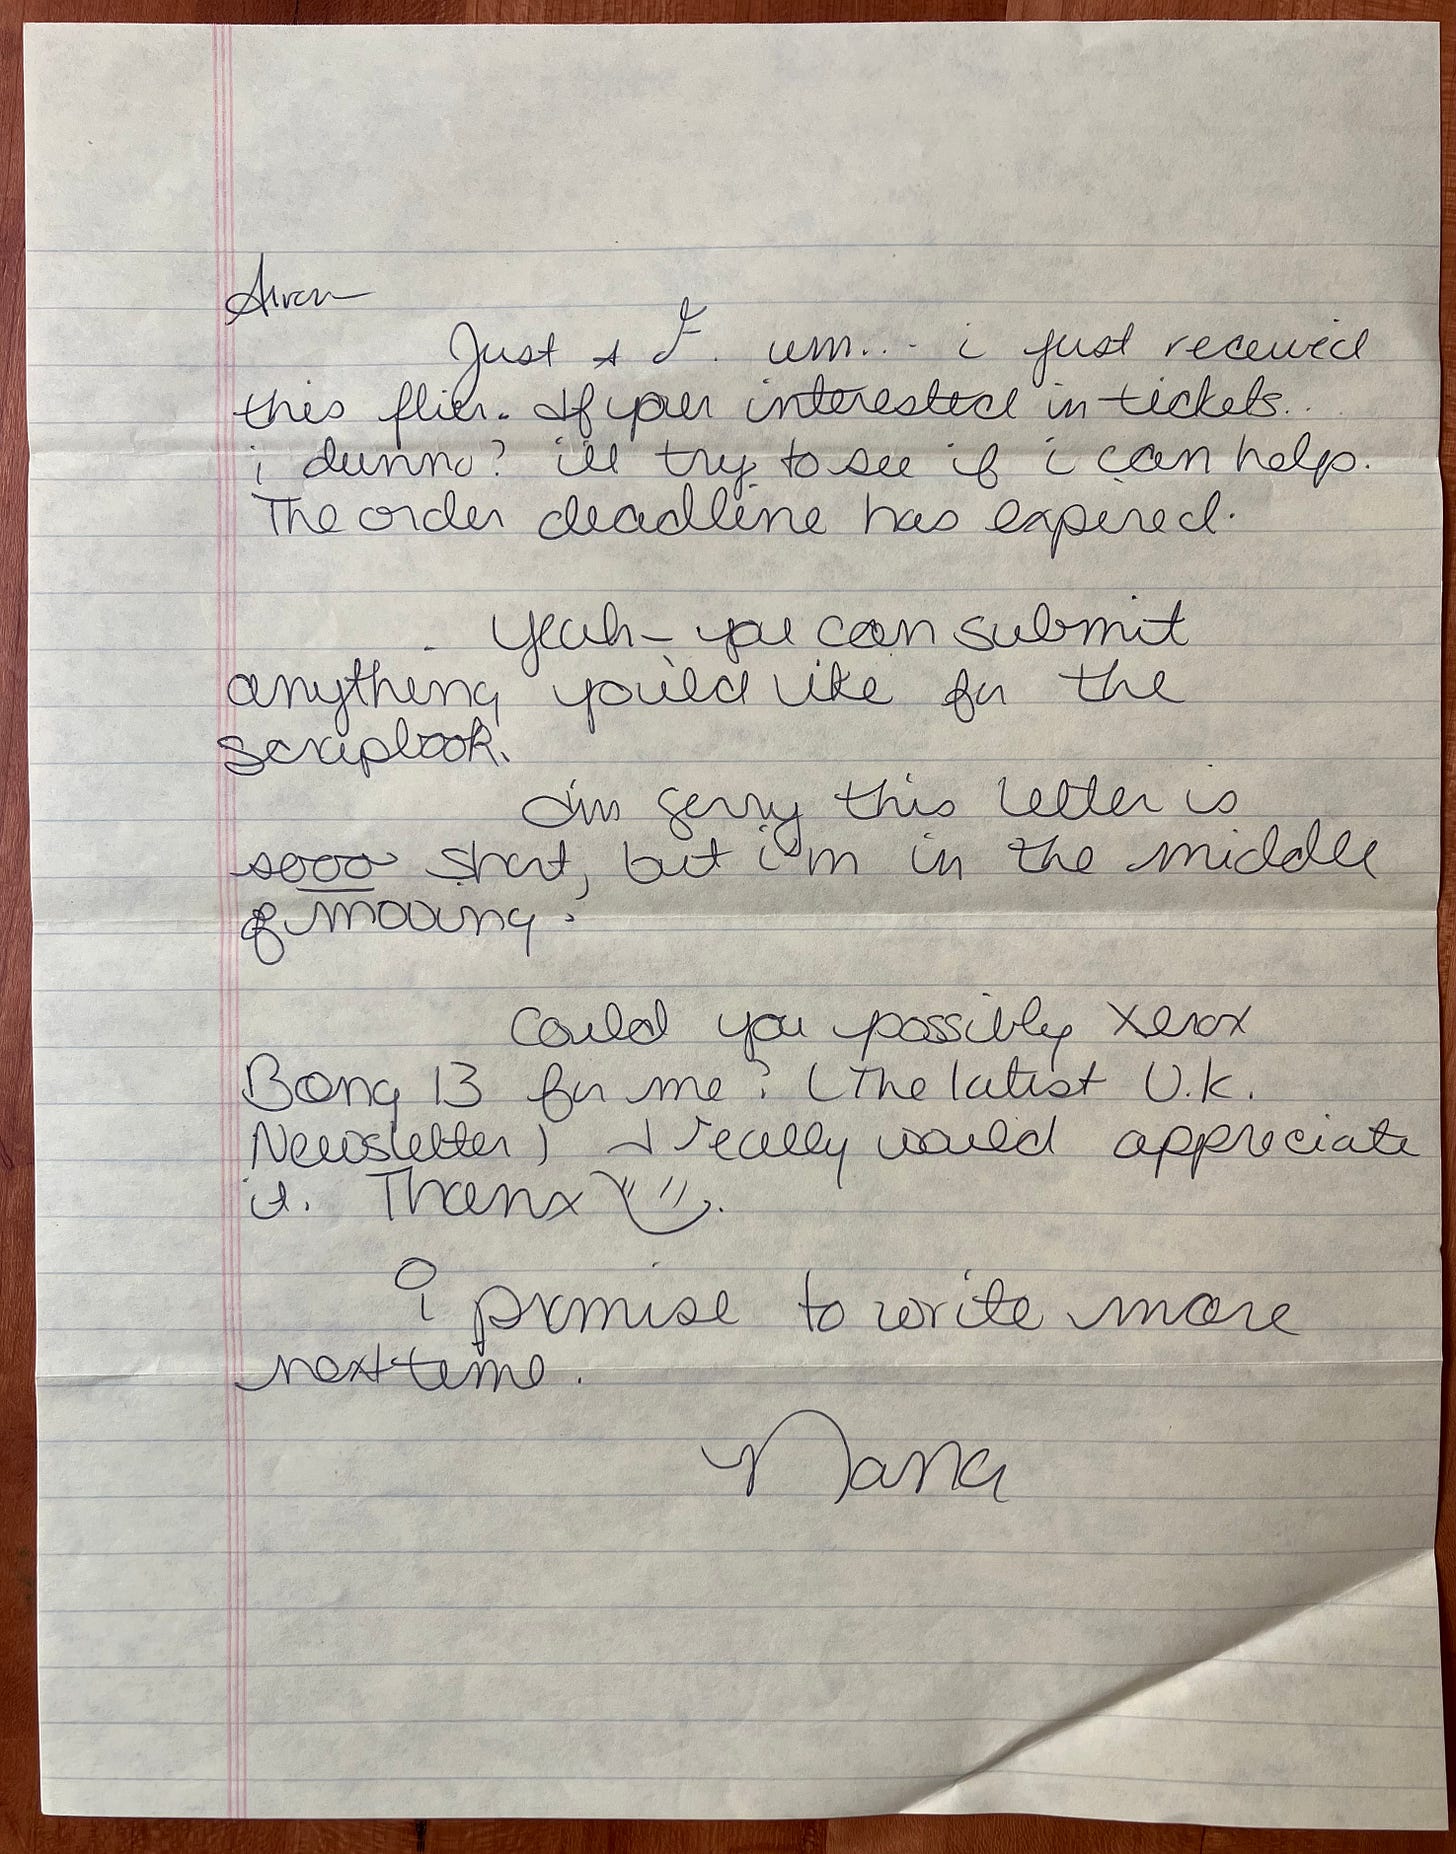 Just I I. um... i just received
this flier. If your interested in tickets...
i dunno? i'll try to see if i can help.
The order deadline has expired.
Yeah - you can submit
anything you'd like for the
scrapbook.
I'm sorry this letter is
sooo short, but i'm in the middle
of moving.
Could you possibly xerox
Bong 13 for me? (The latest U.K.
Newsletter) I really would appreciate
it. Thanx
i promise to write more
next time.
Nana